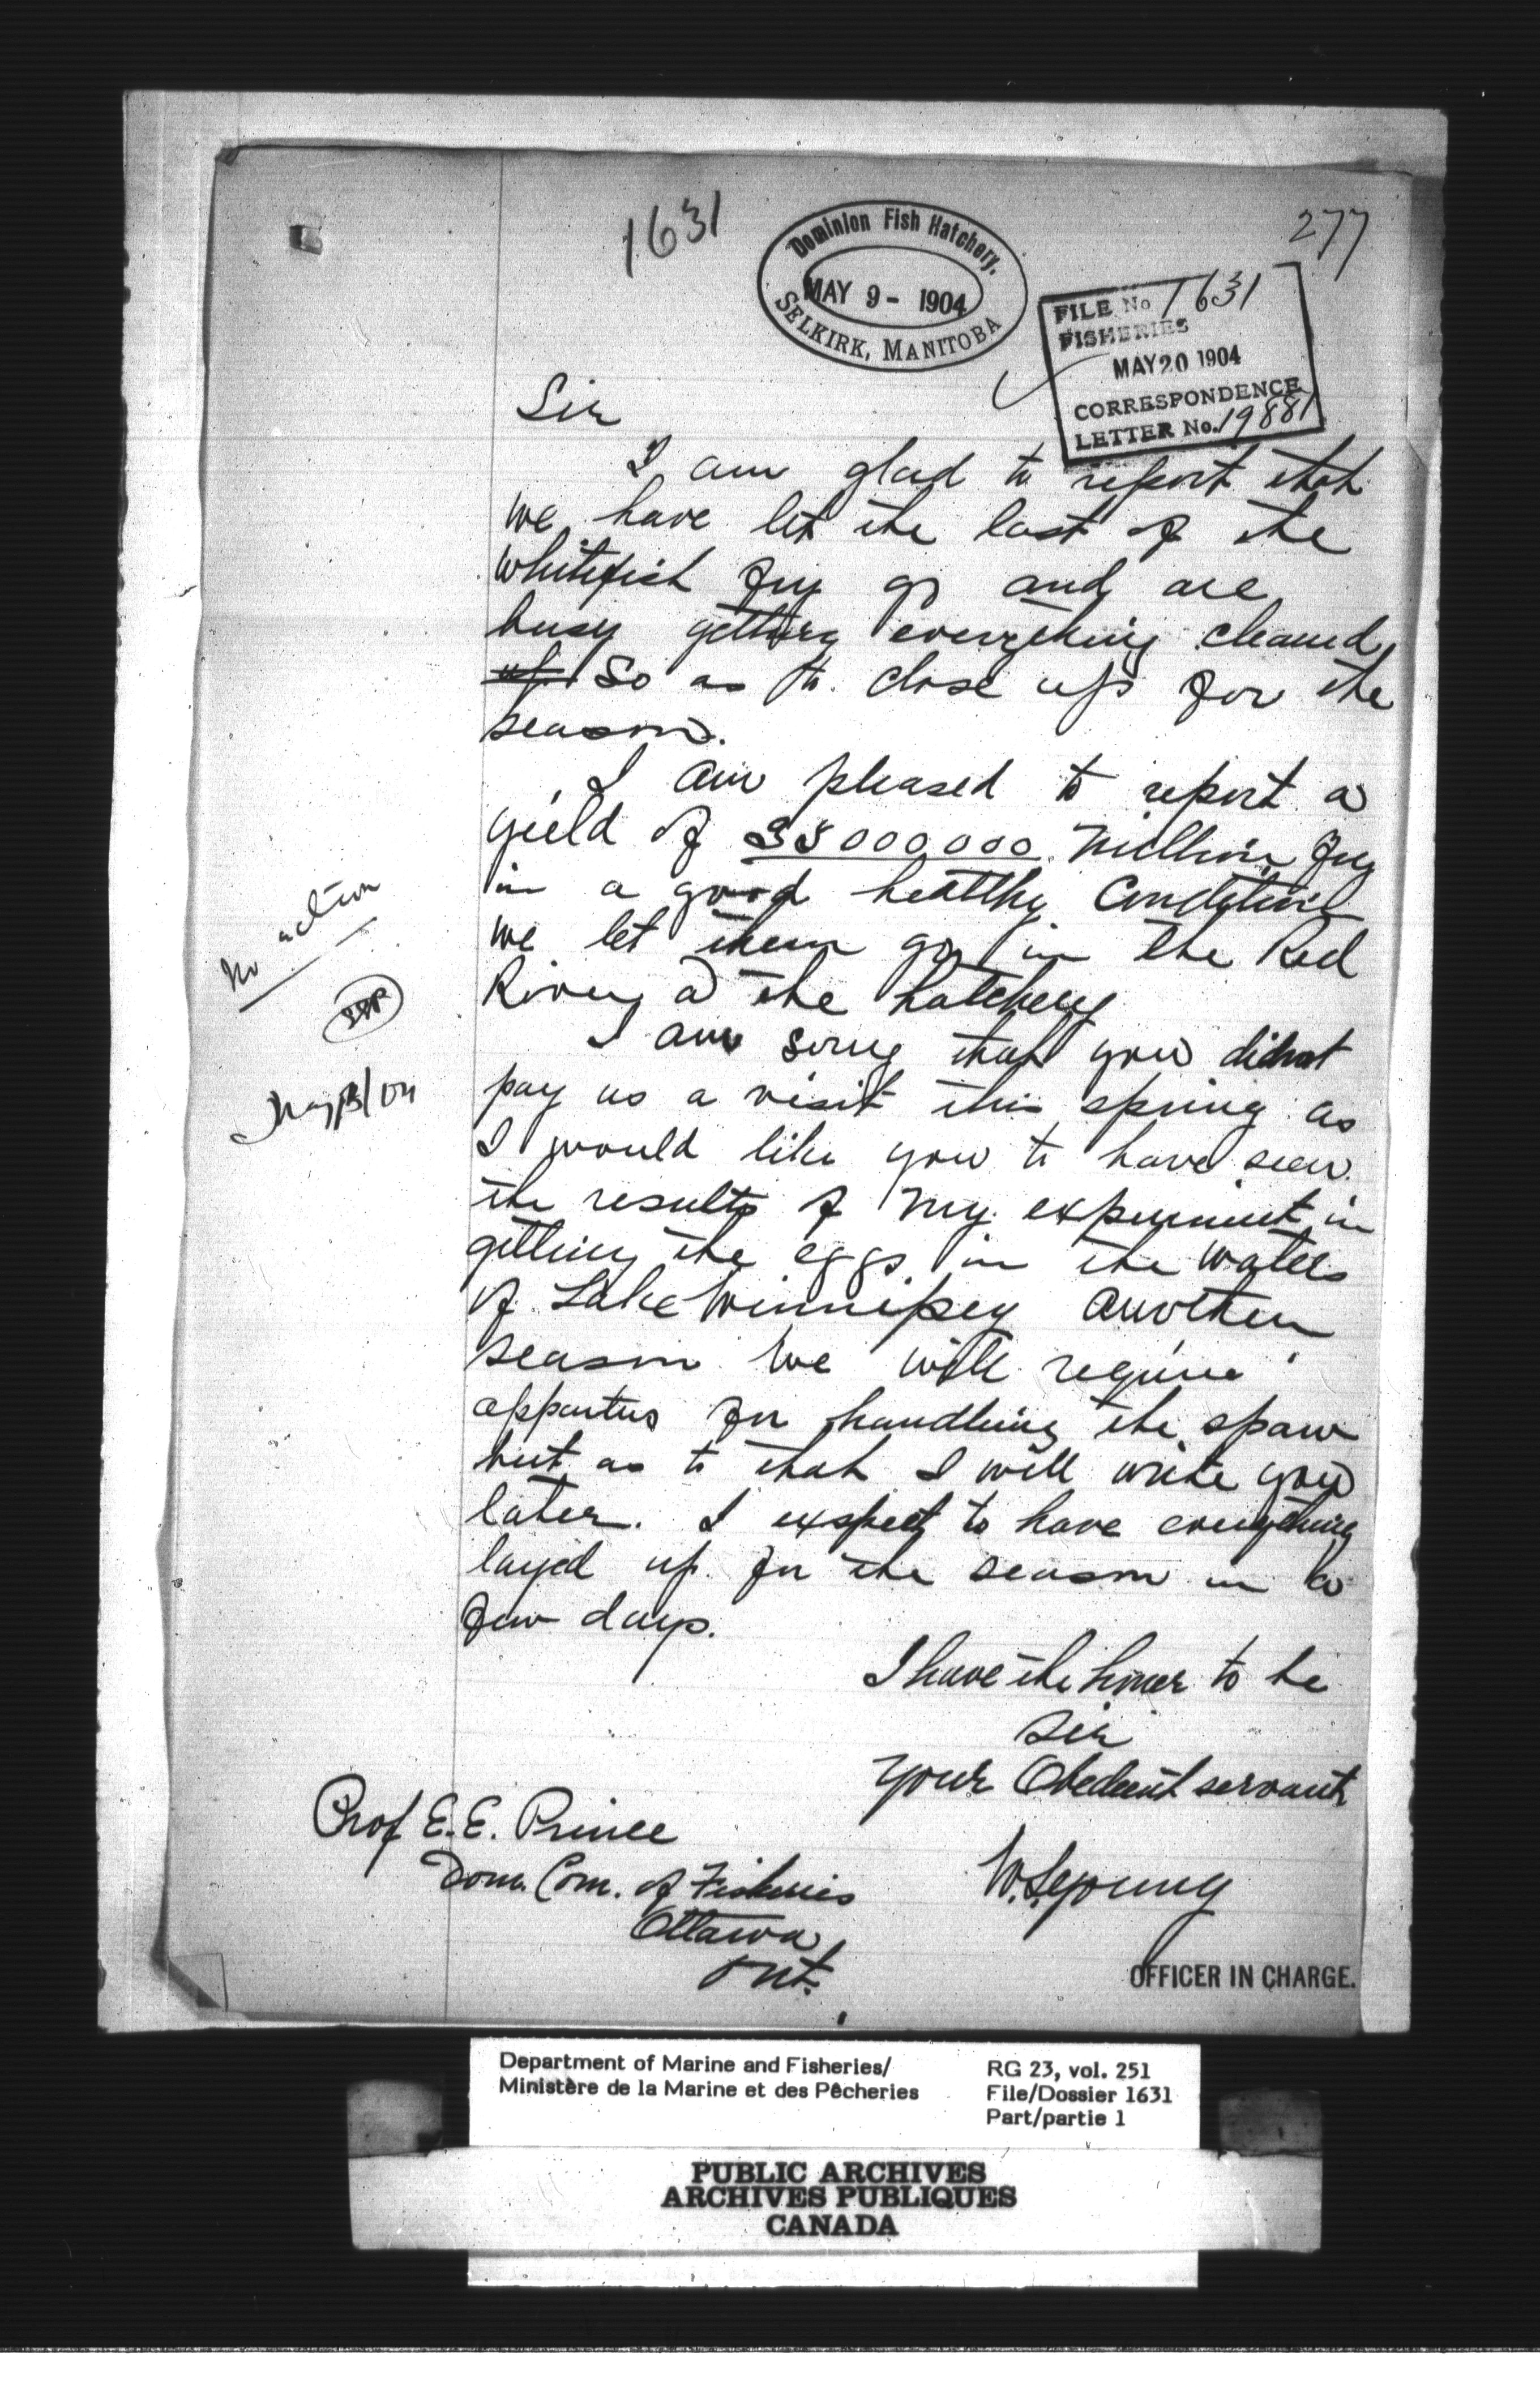 1631
277
Dominion Fish Hatchery,
MAY 9 - 1904
SELKIRK, MANITOBA
FILE No 1631
FISHERIES
MAY 20 1904
CORRESPONDENCE
LETTER No. 19881
Sir
I am glad to report that
we have let the last of the
whitefish fry go and are
busy getting everything cleaned
up So as to close up for the
season.
I am pleased to report a
yield of 35000000 million fry
in a good healthy condition
we let them go in the Red
River a the hatchery
I am sorry that you didnot
pay us a visit this spring as
I would like you to have seen
the results of my experiment in
getting the eggs in the waters
of Lake Winnipeg another
season we will require
appartus for handling the spawn
but as to that I will write you
later. I expect to have everything
layed up for the season in a
few days.
I have the honor to be
Sir
Your Obedient servant
W.S. Young
OFFICER IN CHARGE.
Prof E.E. Prince
Dom. Com. of Fisheries
Ottawa
Ont.
No action
May /04
Department of Marine and Fisheries/
Ministère de la Marine et des Pêcheries
RG 23, vol. 251
File/Dossier 1631
Part/partie 1
PUBLIC ARCHIVES
ARCHIVES PUBLIQUES
CANADA